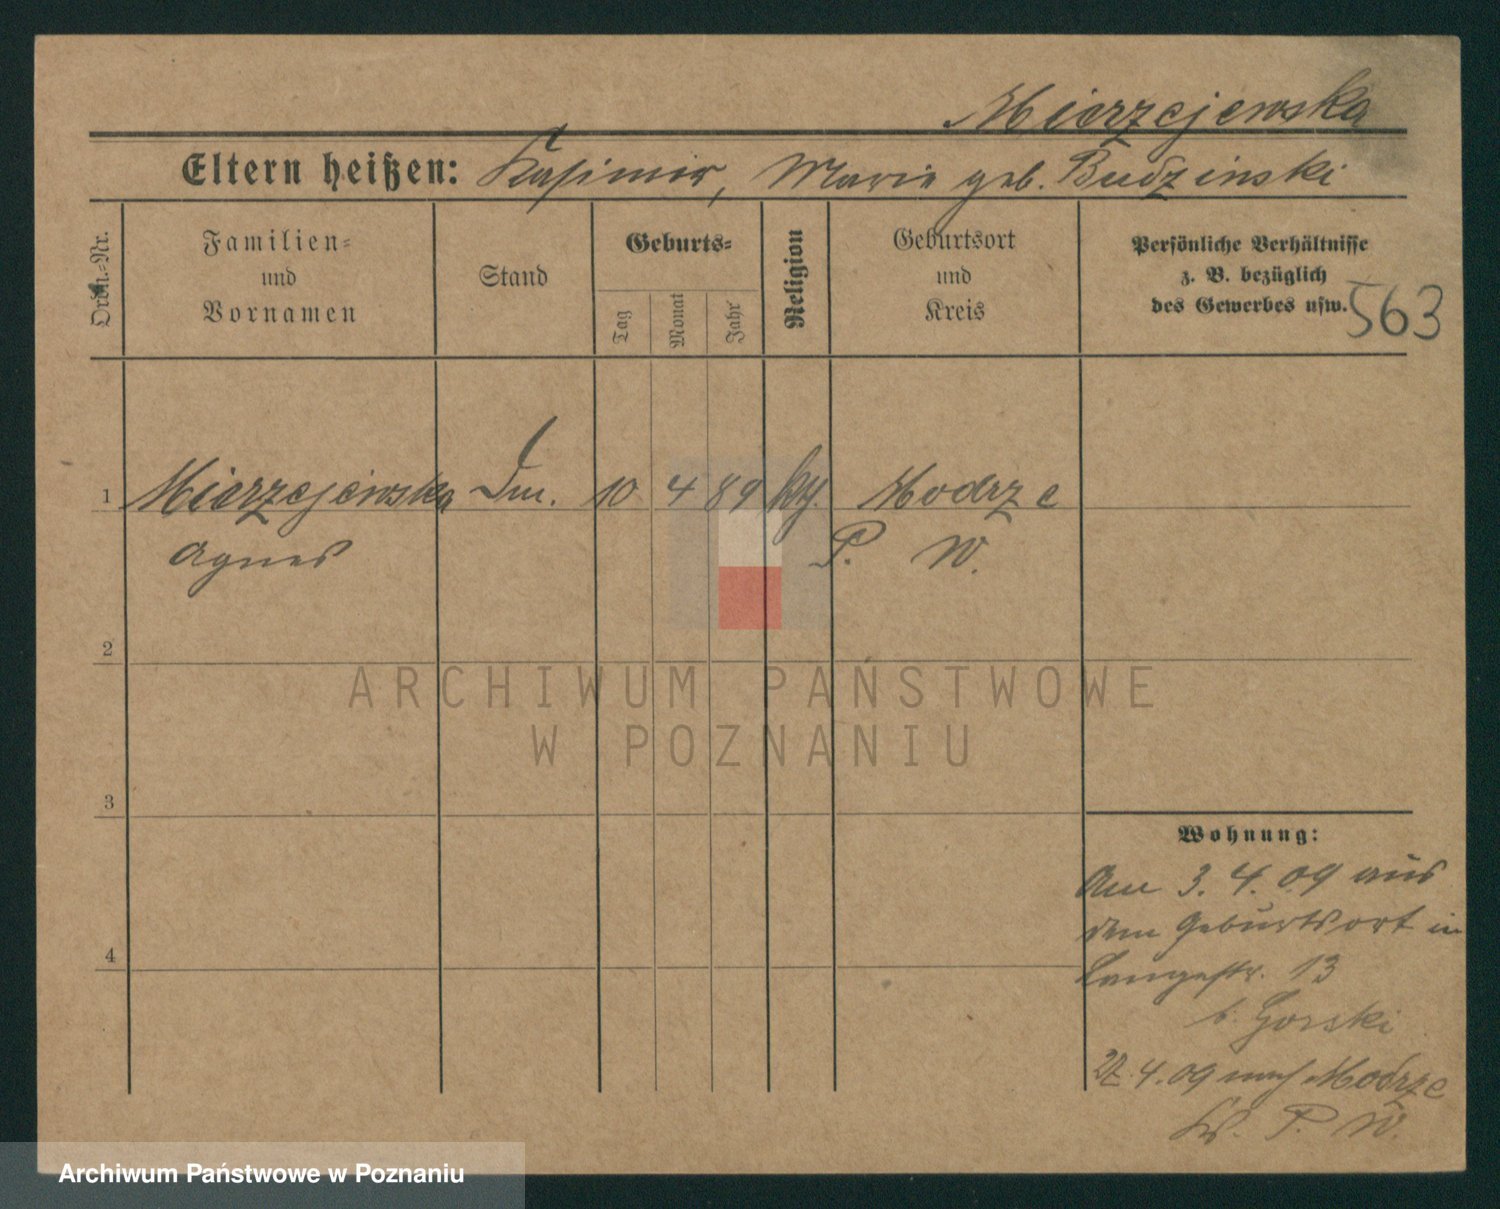 Mierzejewska
Eltern heißen: Kasimir, Marie geb. Budzinski
Ordn.-Nr.
Familien-
und
Vornamen
Stand
Geburts-
Tag
Monat
Jahr
Religion
Geburtsort
und
Kreis
Persönliche Verhältnisse
z. B. bezüglich
des Gewerbes usw.
563
1 Mierzejewska 10 4 89 Modrze
Agnes P. W.
2
3
4
Wohnung:
Am 3. 4. 09 aus
dem Geburtsort in
Langestr. 13
b. Gorski
27. 4. 09 nach Modrze
P. W.
ARCHIWUM PAŃSTWOWE
W POZNANIU
Archiwum Państwowe w Poznaniu